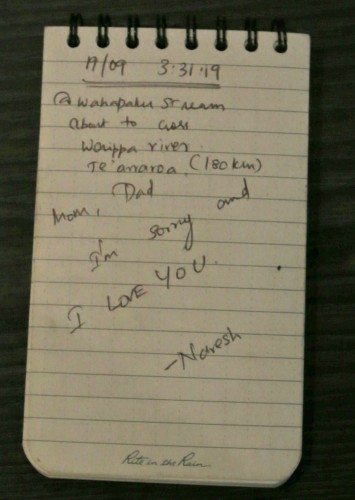 19/09 3:31:19
@ Wahapaku Stream
About to cross
Waippa river
Te anaroa (180 km)
Mom, Dad and
I'm sorry
I LOVE YOU.
-Naresh
Rite in the Rain